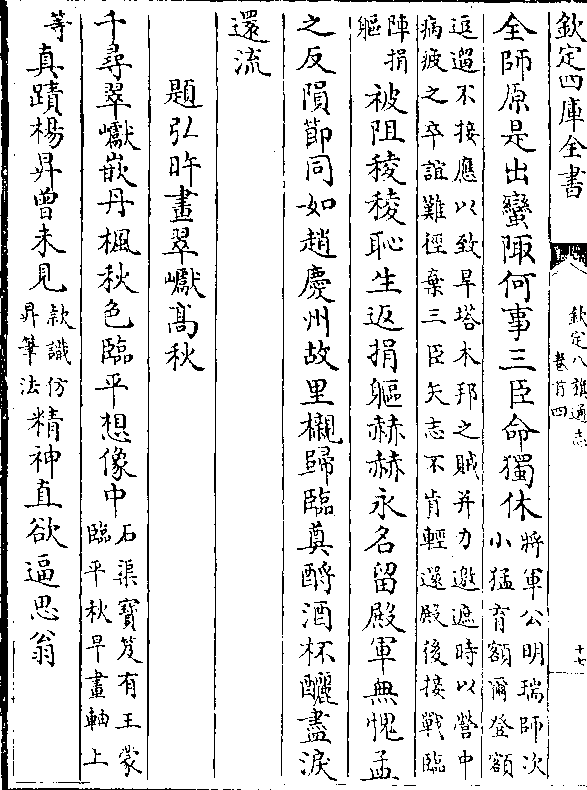 欽定四庫全書
欽定八旗通志
卷首四
十七
全師原是出蠻陬何事三臣命獨休將軍公明瑞師次
小猛育額爾登額
逗遛不接應以致旱塔木邦之賊并力邀遮時以營中
病疲之卒誼難徑棄三臣矢志不肯輕還殿後接戰臨
陣捐
軀被阻稜稜恥生返捐軀赫赫永名留殿軍無愧孟
之反隕節同如趙慶州故里櫬歸臨奠酹酒杯釃盡淚
還流
題弘旿畫翠巘高秋
千尋翠巘嵌丹楓秋色臨平想像中石渠寶笈有王蒙
臨平秋早畫軸上
等真蹟楊昇曾未見款識仿
昇筆法精神直欲逼思翁